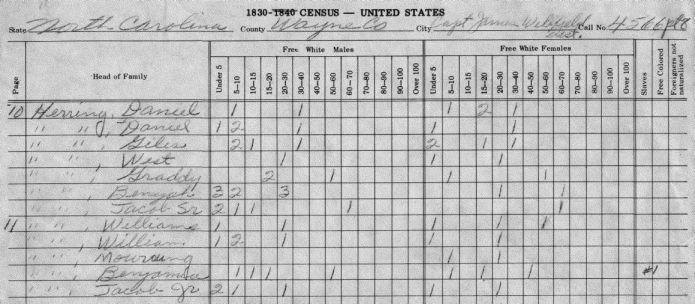 1830-1840 CENSUS — UNITED STATES
State North Carolina County Wayne Co City Capt James Dist. Call No. 4566 pt8
Free White Males Free White Females
Page Head of Family Under 5 5–10 10–15 15–20 20–30 30–40 40–50 50–60 60–70 70–80 80–90 90–100 Over 100 Under 5 5–10 10–15 15–20 20–30 30–40 40–50 50–60 60–70 70–80 80–90 90–100 Over 100 Slaves Free Colored Foreigners not naturalized
10 Herring, Daniel 1 1 1 2 1
" " Daniel 1 2 1 1 1
" " , Giles 2 1 1 2 1 1
" " , West 1 1 1
" " , Graddy 2 1 1 1
" " , 3 2 3 1 1
" " , Jacob Sr 2 1 1 1 1
11 " " , Williams 1 1 1 1
" " , William 1 2 1 1 1
" " , Mourning 1 1
" " , Benjamin 1 1 1 1 1 1 1 #1
" " , Jacob Jr 2 1 1 1 1